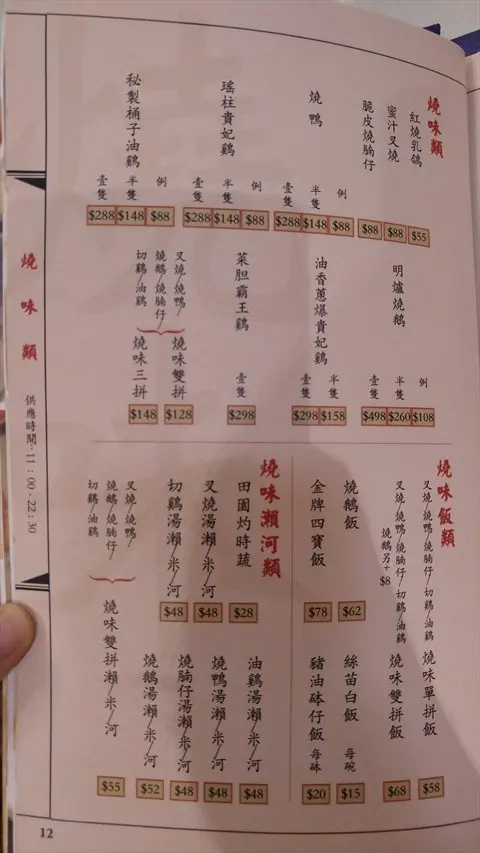 燒味類
紅燒乳鴿 $55
蜜汁叉燒 $88
脆皮燒腩仔 $88
燒鴨
例 $88
半隻 $148
壹隻 $288
瑤柱貴妃鷄
例 $88
半隻 $148
壹隻 $288
秘製桶子油鷄
例 $88
半隻 $148
壹隻 $288
明爐燒鵝
例 $108
半隻 $260
壹隻 $498
油香蔥爆貴妃鷄
半隻 $158
壹隻 $298
菜胆霸王鷄
壹隻 $298
叉燒/燒鴨/
燒鵝/燒腩仔/
切鷄/油鷄
燒味雙拼 $128
燒味三拼 $148
燒味飯類
叉燒/燒鴨/燒腩仔/切鷄/油鷄 燒味單拼飯 $58
叉燒/燒鴨/燒腩仔/切鷄/油鷄 燒味雙拼飯 $68
燒鵝另+$8
燒鵝飯 $62
金牌四寶飯 $78
絲苗白飯 每碗 $15
豬油砵仔飯 每砵 $20
燒味瀨河類
田園灼時蔬 $28
叉燒湯瀨/米/河 $48
切鷄湯瀨/米/河 $48
油鷄湯瀨/米/河 $48
燒鴨湯瀨/米/河 $48
燒腩仔湯瀨/米/河 $48
燒鵝湯瀨/米/河 $52
叉燒/燒鴨/
燒鵝/燒腩仔/
切鷄/油鷄
燒味雙拼瀨/米/河 $55
燒味類
供應時間:11:00-22:30
12